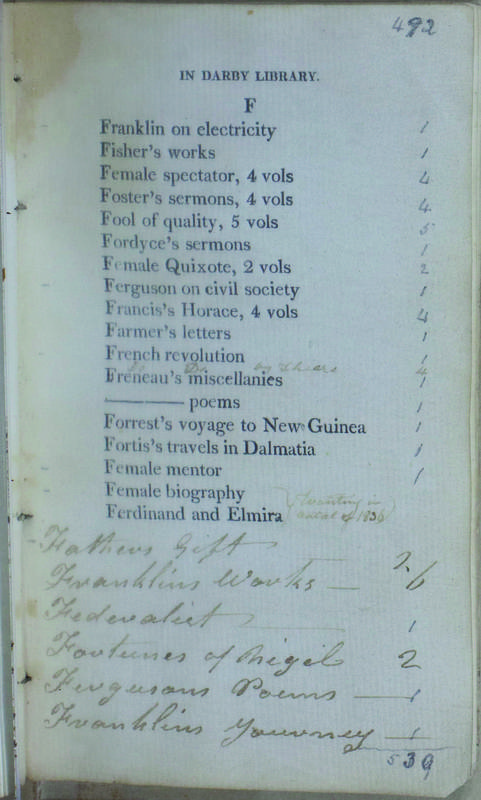 492
IN DARBY LIBRARY.
F
Franklin on electricity 1
Fisher's works 1
Female spectator, 4 vols 4
Foster's sermons, 4 vols 4
Fool of quality, 5 vols 5
Fordyce's sermons 1
Female Quixote, 2 vols 2
Ferguson on civil society 1
Francis's Horace, 4 vols 4
Farmer's letters 1
French revolution 1
Do Do by 4
Freneau's miscellanies 1
——— poems 1
Forrest's voyage to New Guinea 1
Fortis's travels in Dalmatia 1
Female mentor 1
Female biography
Ferdinand and Elmira
wanting in
of 1836
Fathers Gift 2
Franklins Works — 6
Federalist 1
Fortunes of Nigel 2
Fergusons Poems — 1
Franklins Journey — 1
539